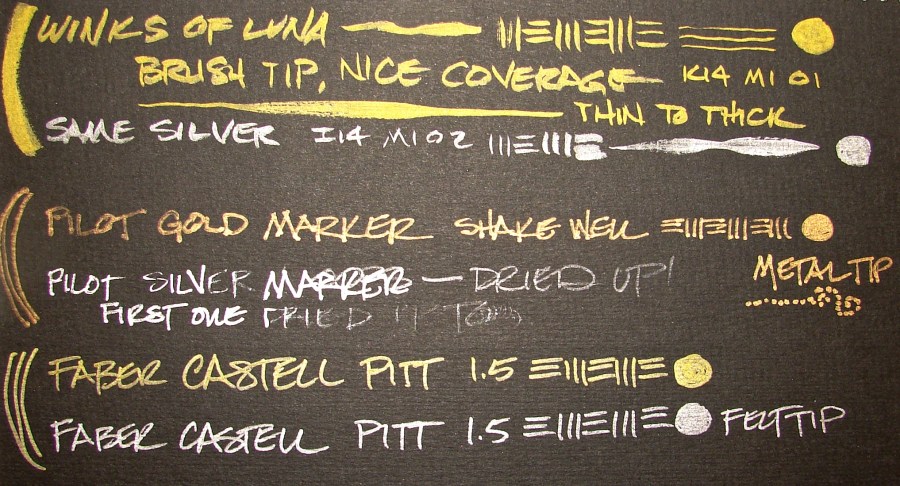 WINKS OF LUNA
BRUSH TIP, NICE COVERAGE K14 M1 01
THIN TO THICK
SAME SILVER I14 M1 02
PILOT GOLD MARKER SHAKE WELL
METAL TIP
PILOT SILVER MARKER — DRIED UP!
FIRST ONE DRIED UP TOO
FABER CASTELL PITT 1.5
FABER CASTELL PITT 1.5 FELT TIP